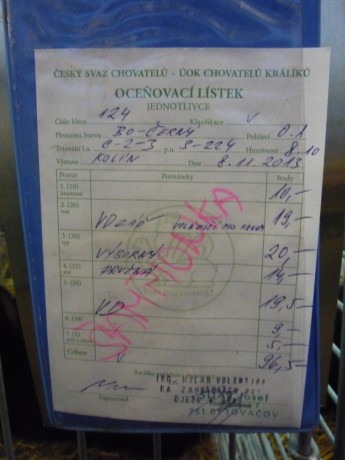 ČESKÝ SVAZ CHOVATELŮ – ÚOK CHOVATELŮ KRÁLÍKŮ
OCEŇOVACÍ LÍSTEK
JEDNOTLIVCE
Číslo klece 124 Klasifikace V
Plemeno barva BO-ČERNÝ Pohlaví 0.1
Tetování l.u. C-2-3 p.u. S-224 Hmotnost 8.10
Výstava KOLÍN Dne 8.11.2013
Pozice Poznámky Body
1. (10) hmotnost 10,–
2. (20) tvar VD ZÁĎ 19,–
3. (20) typ VÝBORNÝ 20,–
4. (15) PRUŽNÁ 14,–
5. (20) VD 19,5–
6. (10) 9,–
7. (5) 5,–
Celkem V 96,5–
ŠAMPIONKA
ING. MILAN VOLENTIČ
NA ZAHRÁDKÁCH
751 01 TOVAČOV